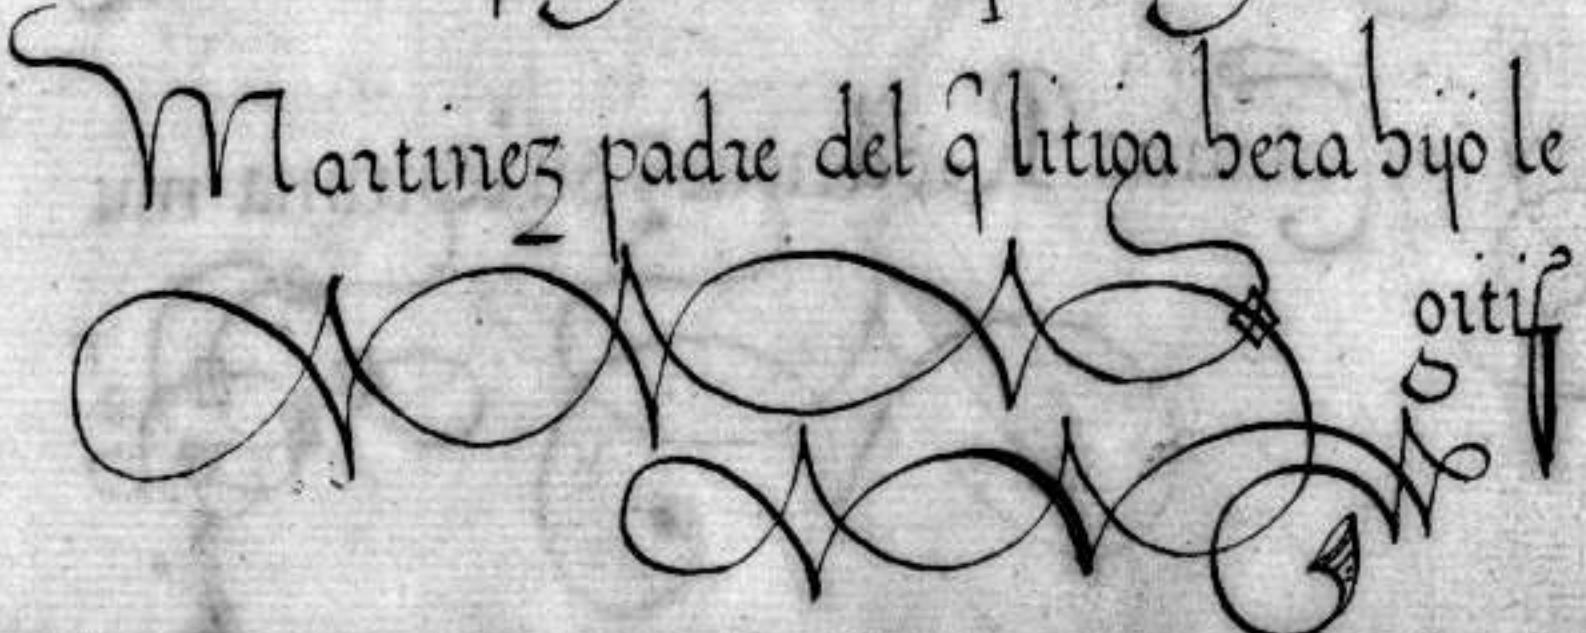 Martinez padre del q̃ litiga hera hijo le
gitif